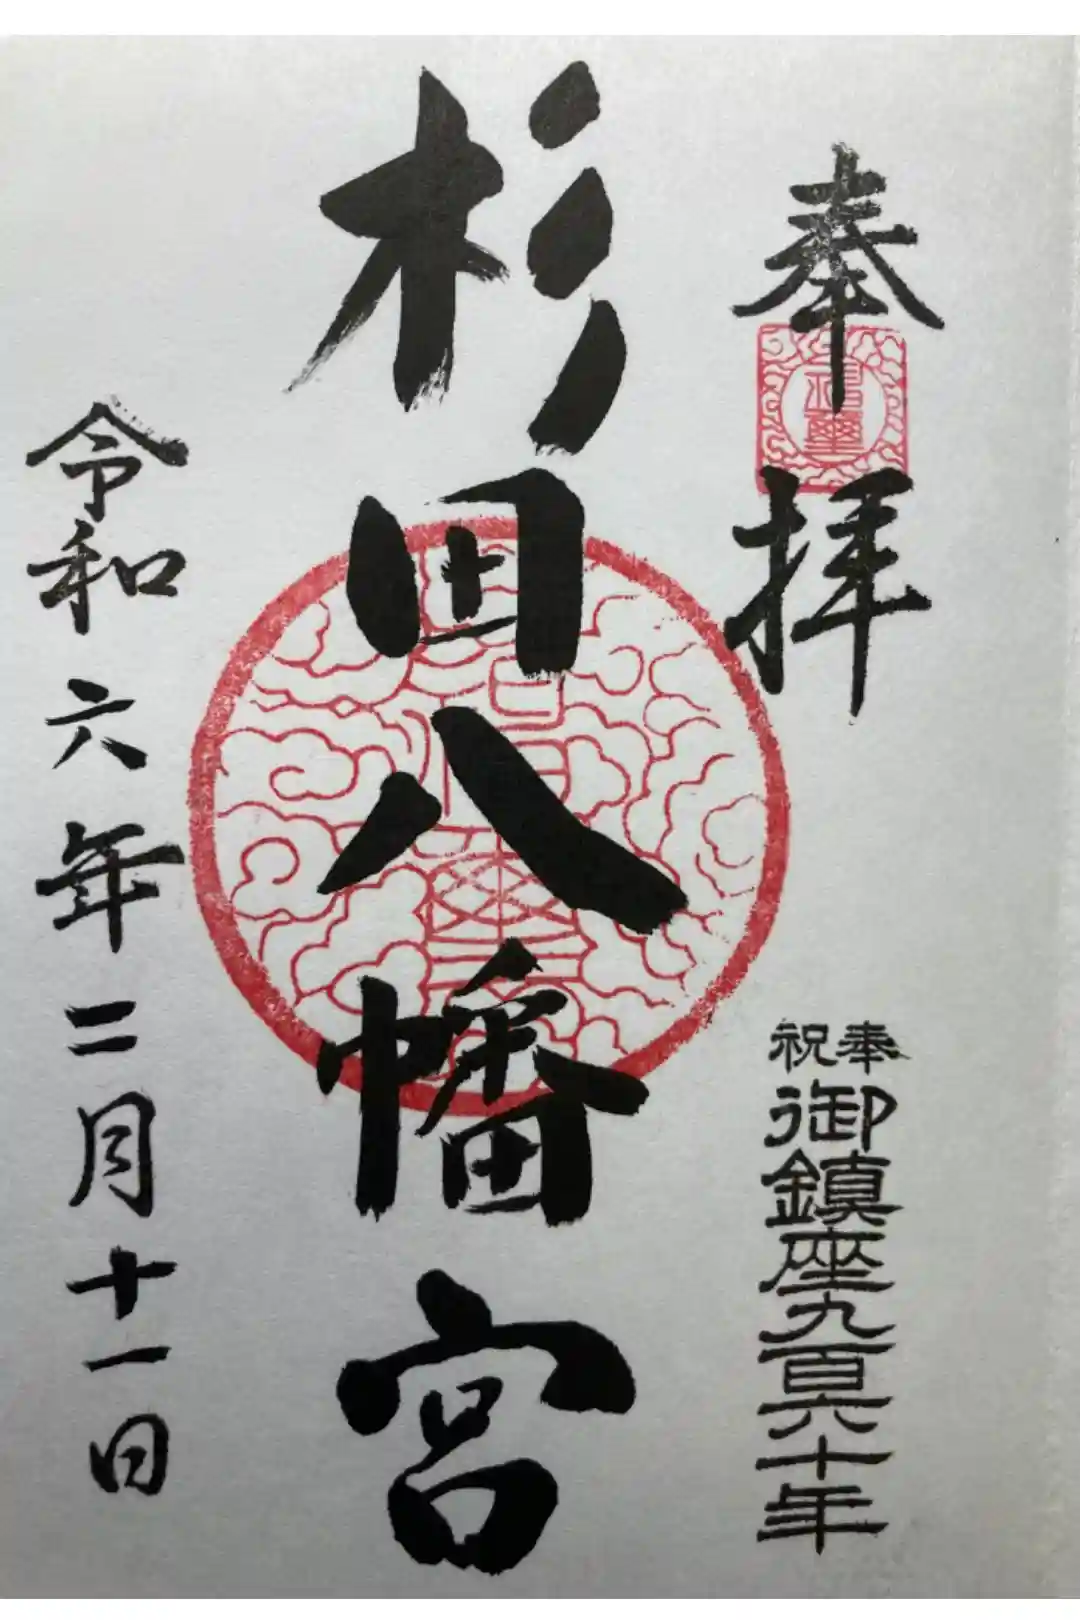 奉拝
奉祝
御鎮座九百六十年
杉田八幡宮
令和六年二月十一日